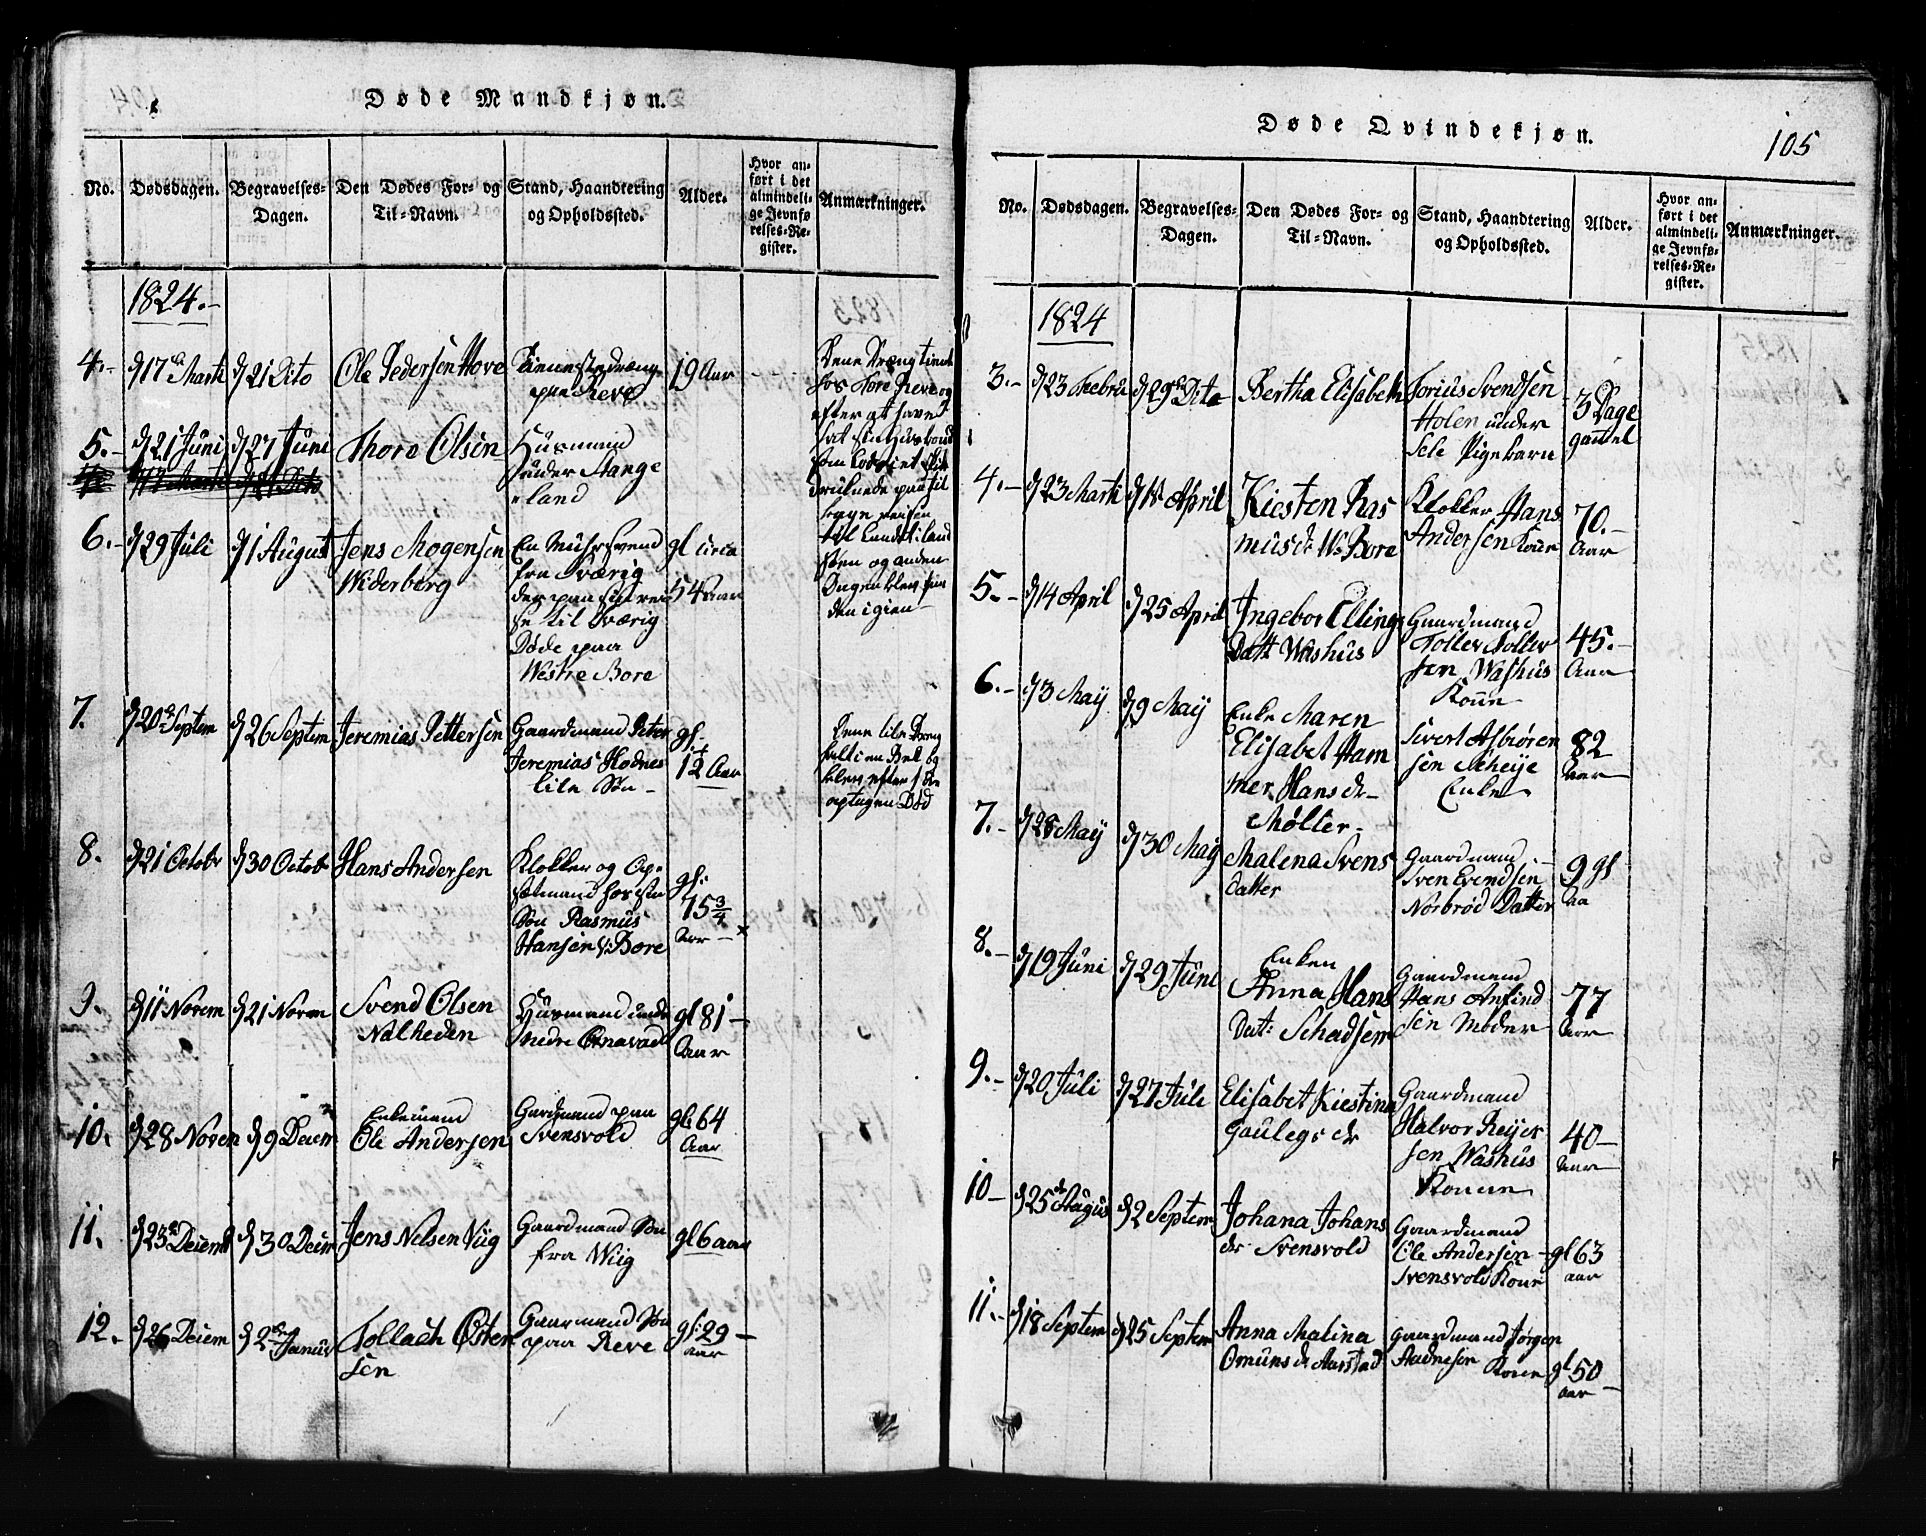 Døde Mandkjøn.
No.
Dødsdagen.
Begravelses-
Dagen.
Den Dødes For- og
Til-Navn.
Stand, Haandtering
og Opholdssted.
Alder.
Hvor an-
ført i det
almindeli-
ge Jevnfø
relses-Re-
gister.
Anmærkninger.
1824.-
4.-
17 Marti
21 Dito
Ole Pedersen Hove
Tienestedreng
paa Reve
19 Aar
Dene Dreng tiente
hos Tore Reve og
efter at have
sat sin Husbond
som
druknede paa til
bage reisen
til Landet
og anden
Dagen blev fun
den igien
5.-
21 Juni
27 Juni
Thore Olsen
Husmand
under Stange
land
6.-
29 Juli
1 August
Jens Mogensen
Widerberg
En Muhrsvend
fra Sværig
der paa sin rei
se til Sværig
Døde paa
Westre Bore
gl circa
54 Aar
7.
20 Septem
26 Septem
Jeremias Pettersen
Gaardmand Peter
Jeremias Hodnes
lile Søn -
gl.
12 Aar
Dene lile Dreng
falt i en Bek og
blev efter
optagen Død
8.
21 Octobr
30 Octob
Hans Andersen
Klokker og Op-
sætmand hos sin
Søn Rasmus
Hansen Bore
gl.
75 3/4
Aar -
9.
11 Novem
21 Novem
Svend Olsen
Nalheden
Husmand under
Nedre
gl 81 -
Aar
10.
28 Noven
9 Decem
Enkemand
Ole Andersen
Gardmand paa
Svensvold
gl 64
Aar
11.
23 Decemb
30 Decem
Jens Nelsen Viig
Gaardmand Søn
fra Wiig
gl 6 aar
12.
26 Decem
2 Janur
Tollach Øster
sen
Gaarmand Søn
paa Reve
gl. 29 -
aar
Døde Qvindekjøn.
105
No.
Dødsdagen.
Begravelses-
Dagen.
Den Dødes For- og
Til-Navn.
Stand, Haandtering
og Opholdssted.
Alder.
Hvor an-
ført i det
almindeli-
ge Jevnfø-
relses-Re-
gister.
Anmærkninger.
1824
3.-
23 Feebru
29 Dito
Bertha Elisabeth
Torius Svendsen
Holen under
Sele Pigebarn
3 Dage
gamel
4.-
23 Marti
18 April
Kiesten Ras
mus dr W: Bore
Klokker Hans
Andersen Kone
70.-
Aar
5.-
14 April
25 April
Ingebor Elling
Datt Washus
Gaardmand
Tollev Tollev
sen Washus
Kone
45.-
Aar
6.-
3 May
9 May
Enke Maren
Elisabet Ham
mer Hans dr-
Mølter.
Sivert Asbiøren
sen Scheije
Enke
82
Aar
7.-
28 May
30 May
Malena Svens
datter
Gaardmand
Sven Evendsen
Norbrød Datter
9 gl
Aa
8.-
19 Juni
29 Juni
Enken
Anna Hans
Dat: Schadsem
Gaardmand
Hans Anfind
sen Moder
77
Aar
9.-
20 Juli
27 Juli
Elisabet Kiestina
Gaulegs dr
Gaardmand
Halvor Reyer
sen Washus
Konne
40-
Aar
10-
25 Augus
2 Septem
Johana Johans
dr Svensvold
Gaardmand
Ole Andersen
Svensvold Kone
gl 63
aar
11.-
18 Septem
25 Septem
Anna Malina
Omuns dr Aarstad
Gaardmand Jørgen
Aadnesen Kone
gl 50
aar